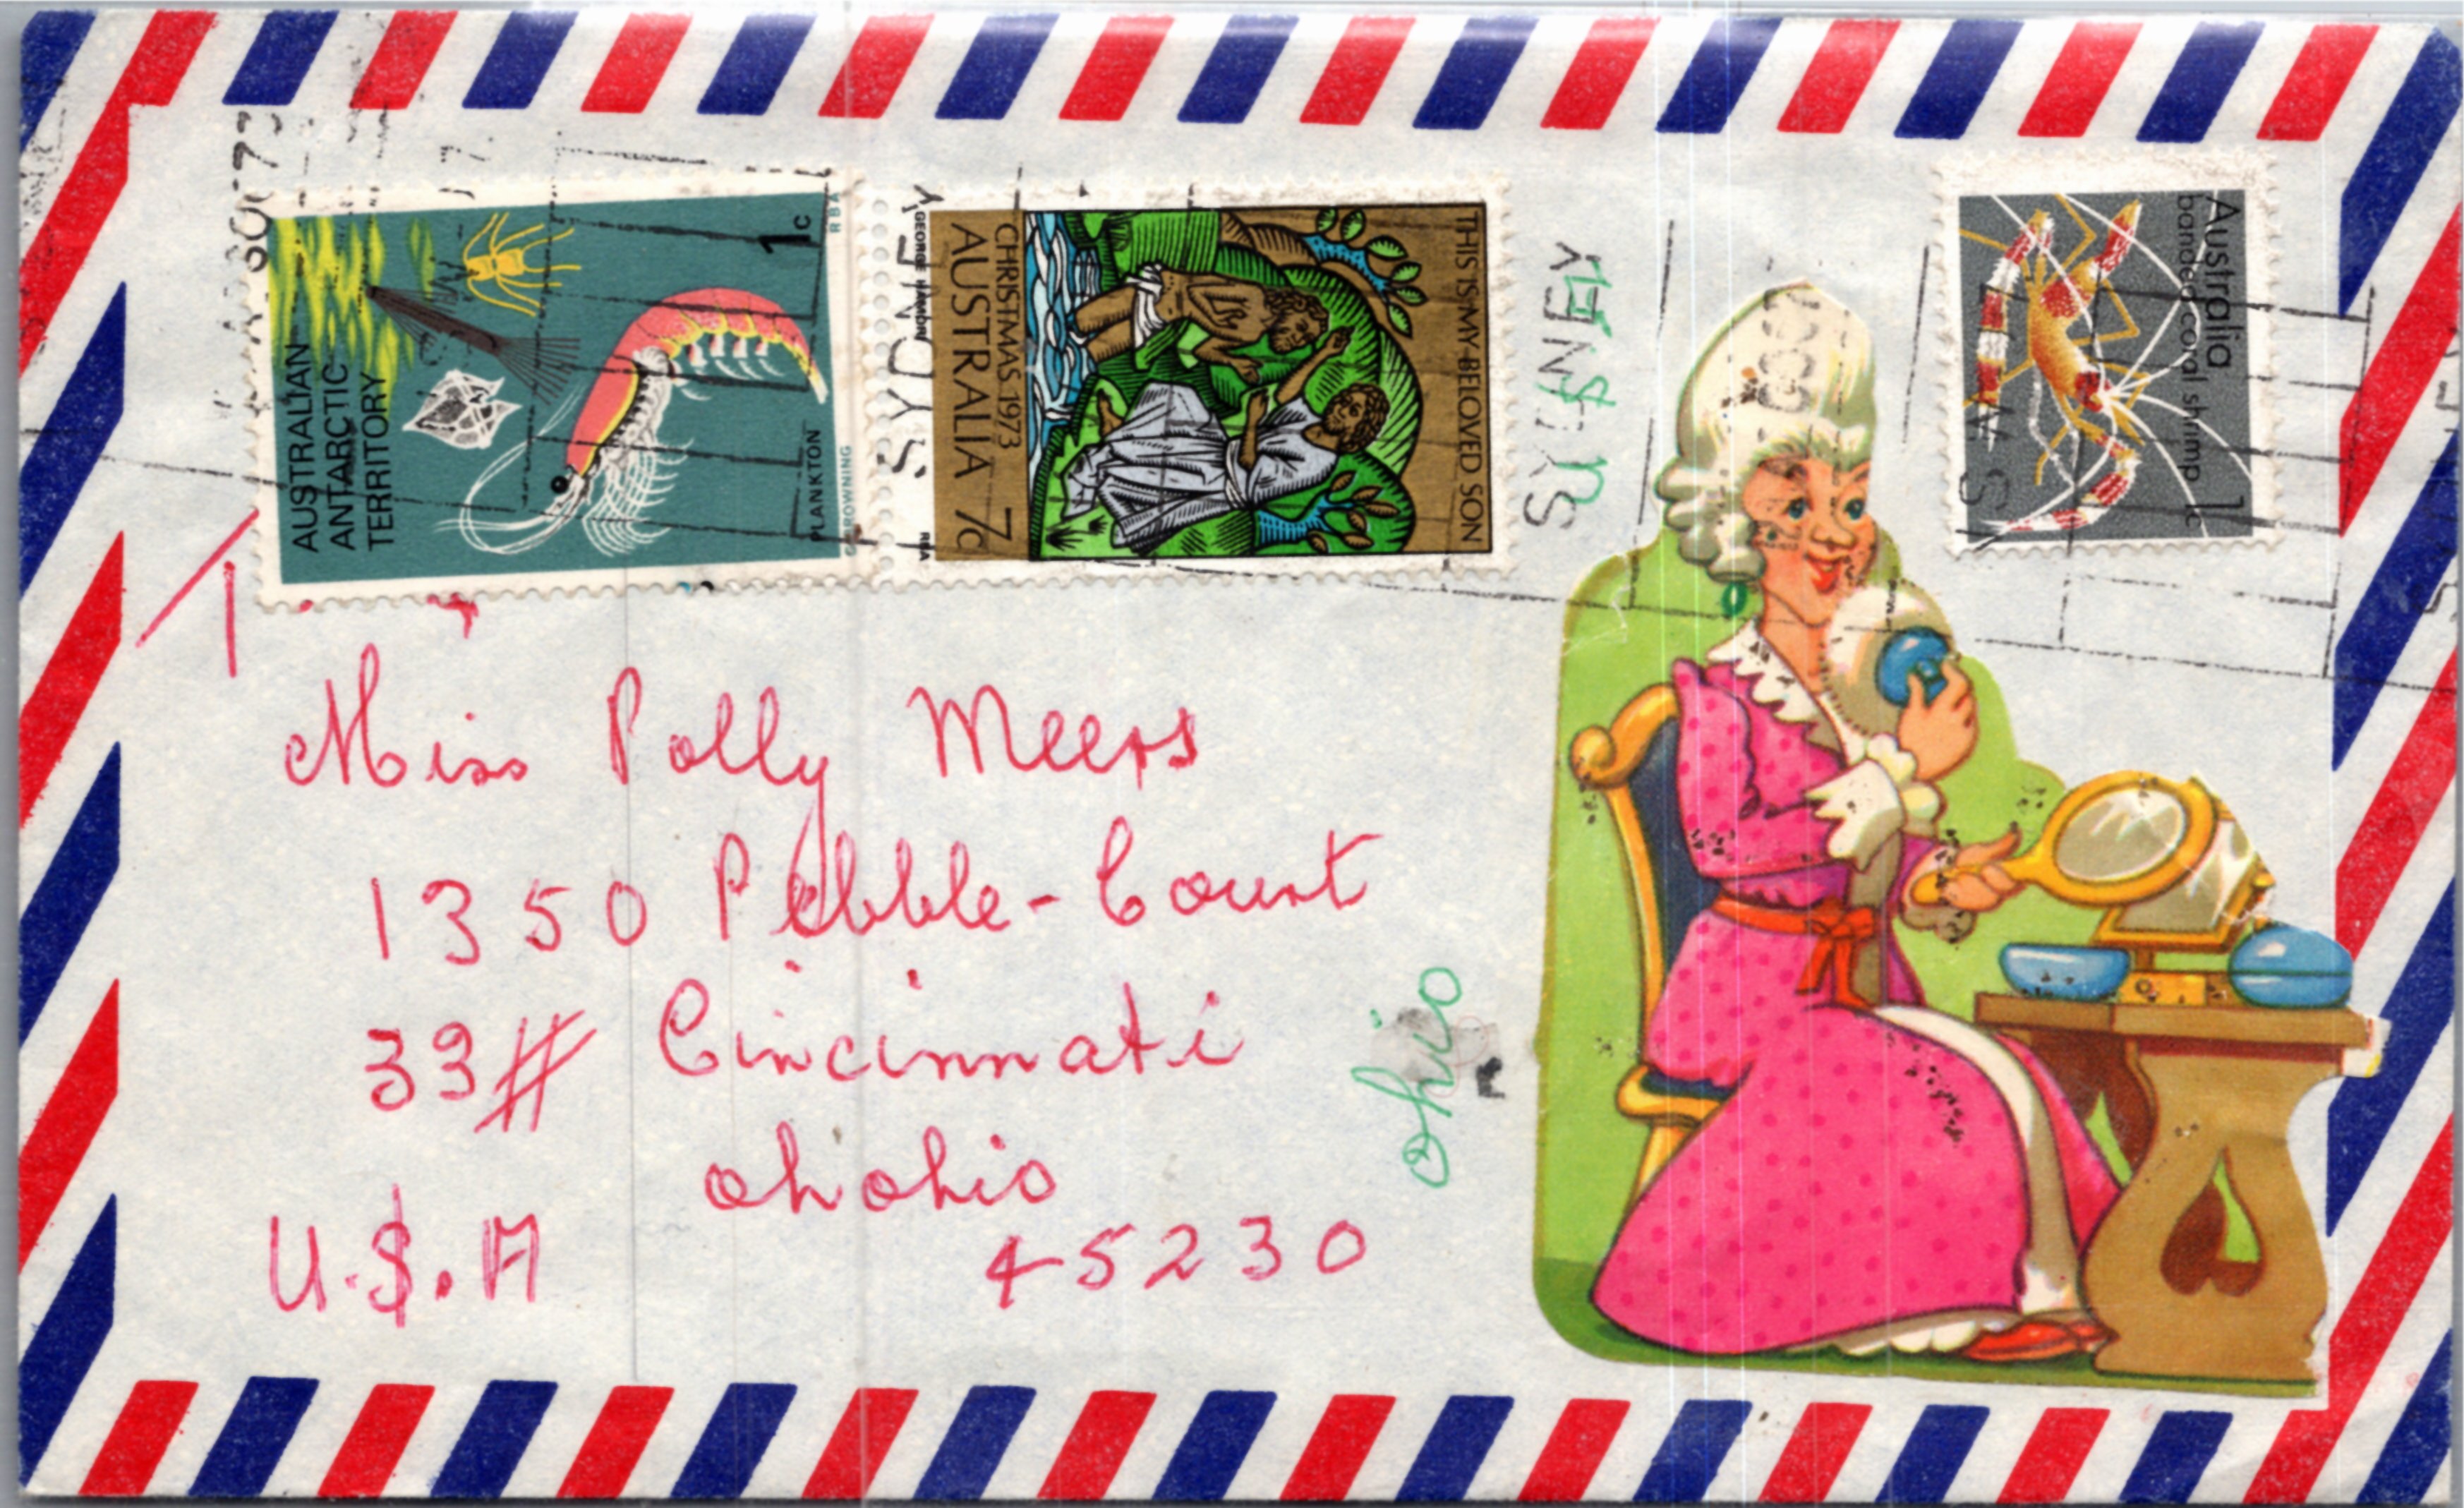 AUSTRALIAN
ANTARCTIC
TERRITORY
1c
PLANKTON
RBA
SYDNEY
GEORGE HAMORI
RBA
AUSTRALIA 7c
CHRISTMAS 1973
THIS IS MY BELOVED SON
SYDNEY
U.S.A
Australia
banded coral shrimp 1c
Miss Polly Meers
1350 Pebble-Court
33# Cincinnati
oh ohio
U.S.A 45230
ohio